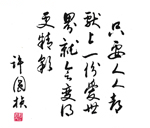 只要人人都
献上一份爱世
界就会变得
更精彩